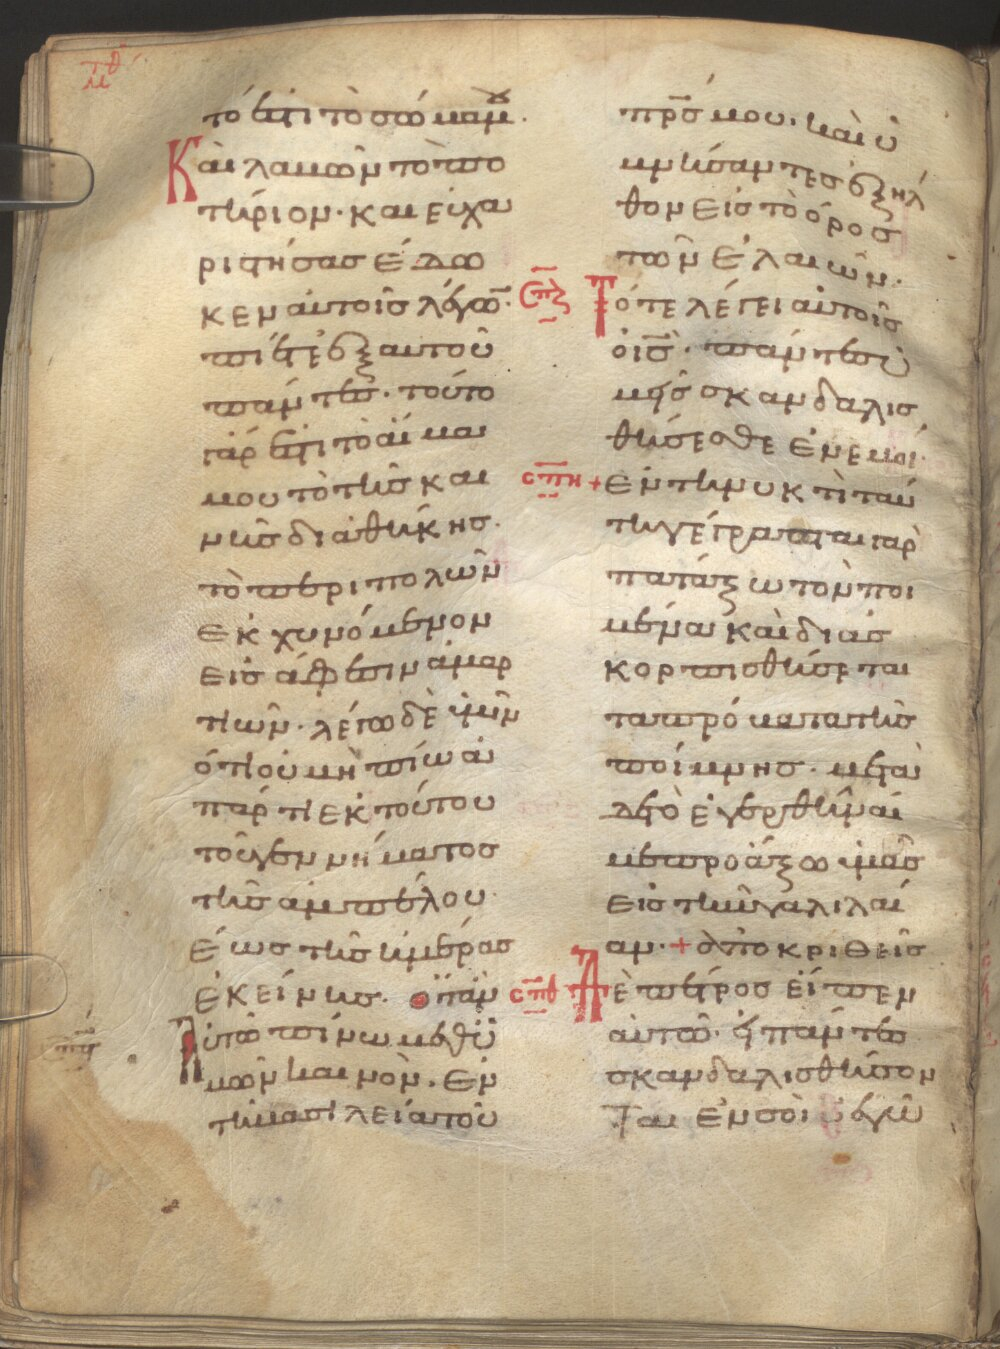 μθ
τό ἐστι τὸ σῶμά μου.
Καὶ λαβὼν τὸ πο
τήριον· καὶ εὐχα
ριστήσας ἔδω
κεν αὐτοῖς λέγων·
πίετε ἐξ αὐτοῦ
πάντες· τοῦτο
γάρ ἐστι τὸ αἷμα
μου τὸ τῆς και
νῆς διαθήκης·
τὸ περὶ πολλῶν
ἐκχυνόμενον
εἰς ἄφεσιν ἁμαρ
τιῶν· λέγω δὲ ὑμῖν
ὅτι οὐ μὴ πίω ἀ
πάρτι ἐκ τούτου
τοῦ γεννήματος
τῆς ἀμπέλου·
ἕως τῆς ἡμέρας
ἐκείνης· ὅταν
αὐτὸ πίνω μεθ ὑ
μῶν καινὸν· ἐν
τῇ βασιλείᾳ τοῦ
πρς μου· καὶ ὑ
μνήσαντες ἐξῆλ
θον εἰς τὸ ὄρος
τῶν ἐλαιῶν·
σπζ Τότε λέγει αὐτοῖς
ὁ ις· πάντες ὑ
μεῖς σκανδαλισ
θήσεσθε ἐν ἐμοὶ·
σπη + ἐν τῇ νυκτὶ ταύ
τῃ γέγραπται γὰρ
πατάξω τὸν ποι
μένα καὶ διασ
κορπισθήσεται
τὰ πρόβατα τῆς
ποίμνης· μετὰ
δὲ τὸ ἐγερθῆναί
με προάξω ὑμᾶς
εἰς τὴν γαλιλαί
αν· + ἀποκριθεὶς
σπθ Δὲ πέτρος εἶπεν
αὐτῷ· εἰ πάντες
σκανδαλισθήσον
ται ἐν σοὶ ἐγὼ